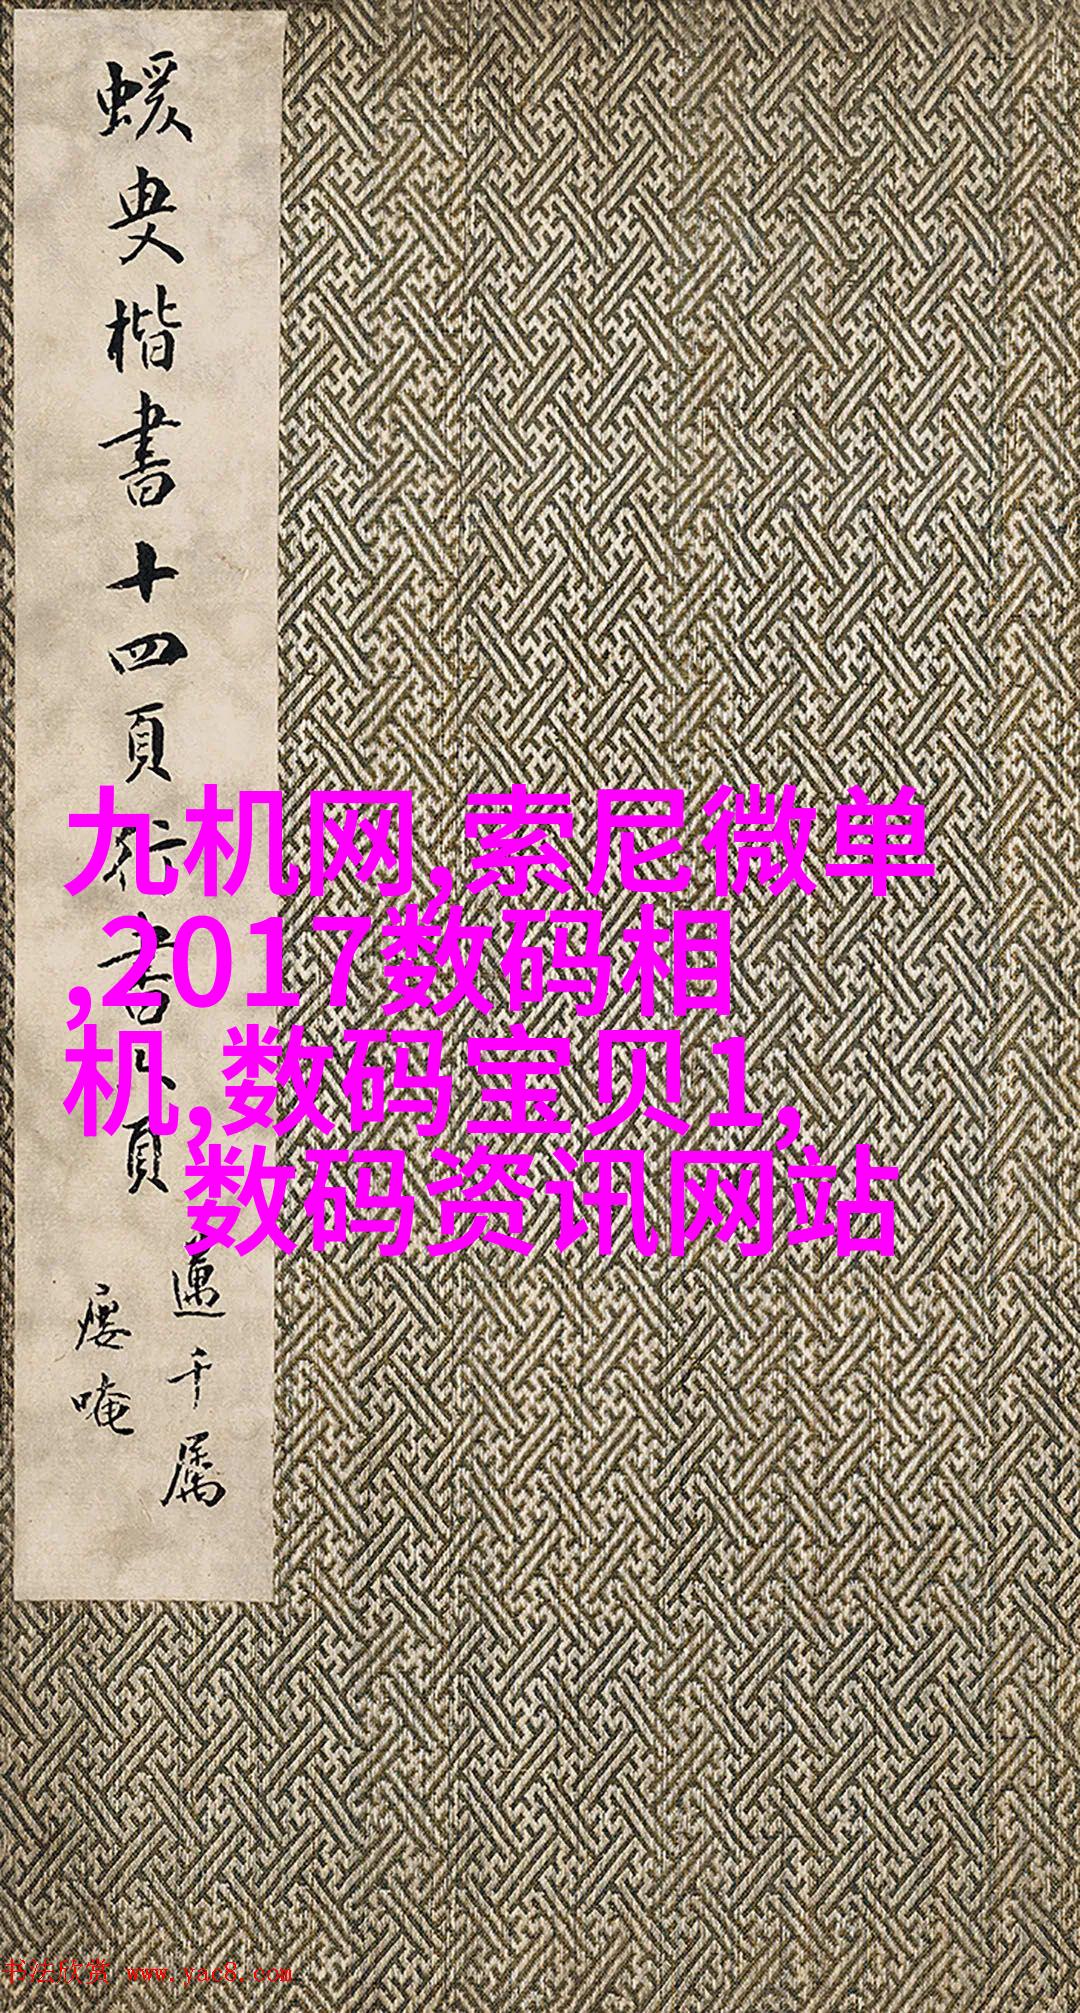 蝯叟楷書十四頁行書八頁
遇千属
瘦唵
九机网,索尼微单
,2017数码相
机,数码宝贝1,
数码资讯网站
书法欣赏 www.yac8.com